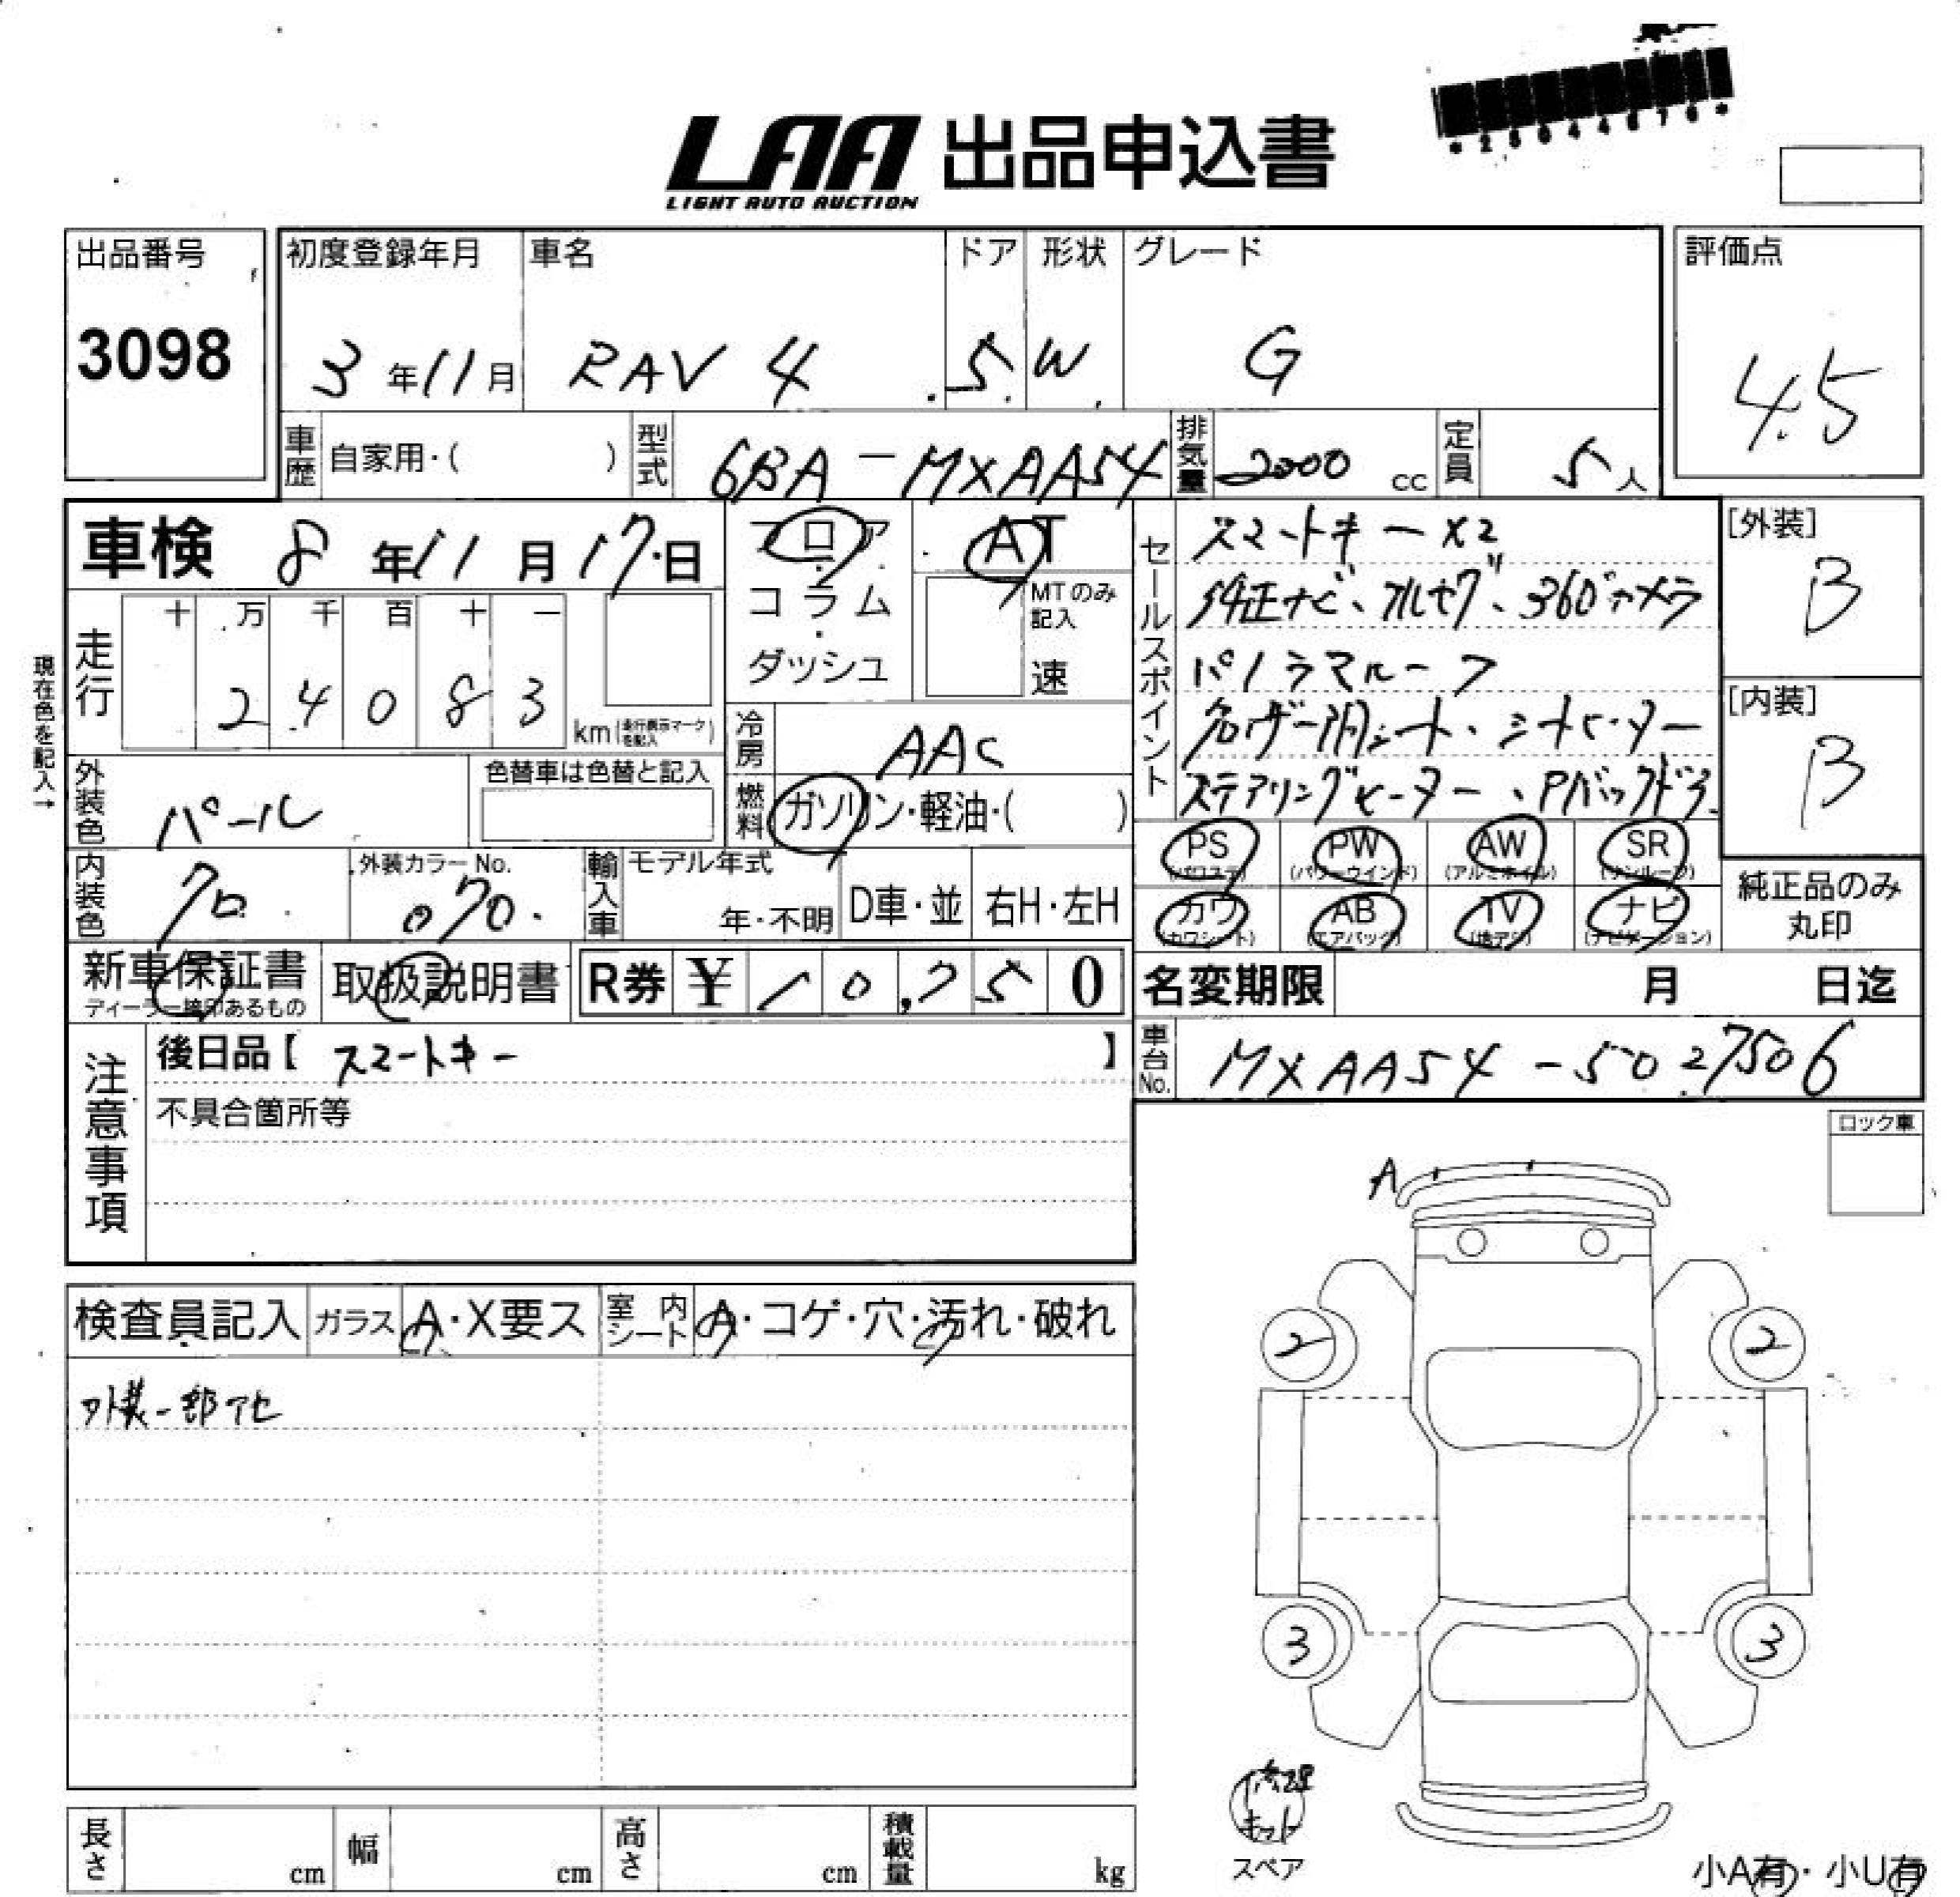 LAA 出品申込書
LIGHT AUTO AUCTION
出品番号
3098
初度登録年月
3年11月
車名
RAV 4
ドア
5
形状
W
グレード
G
評価点
4.5
車歴 自家用・( )
型式 6BA-MXAA54
排気量 2000 cc
定員 5人
車検 8年11月17日
フロア・コラム・ダッシュ
AT
MTのみ記入
速
セールスポイント
スマートキー×2
純正ナビ、フルセグ、360°カメラ
パノラマルーフ
シートヒーター
ステアリングヒーター、Pバックドア
[外装]
B
[内装]
B
現在色を記入→
走行
十 万 千 百 十 一
2 4 0 8 3
km(走行表示マークを記入)
冷房 AAC
外装色 パール
色替車は色替と記入
燃料 ガソリン・軽油・( )
PS (パワステ) PW (パワーウインド) AW (アルミホイル) SR (サンルーフ)
カワ (カワシート) AB (エアバッグ) TV (地デジ) ナビ (ナビゲーション)
純正品のみ丸印
内装色 クロ
外装カラーNo. 070
輸入車 モデル年式 年・不明 D車・並 右H・左H
新車保証書
ディーラー捺印あるもの
取扱説明書
R券 ¥ 10,750
名変期限 月 日迄
車台No. MXAA54-5027506
注意事項
後日品【スマートキー】
不具合箇所等
ロック車
A
検査員記入 ガラス A・X要ス 室内シート A・コゲ・穴・汚れ・破れ
外装一部アセ
2 2
3 3
修理キット
スペア
長さ cm 幅 cm 高さ cm 積載量 kg
小A有・小U有